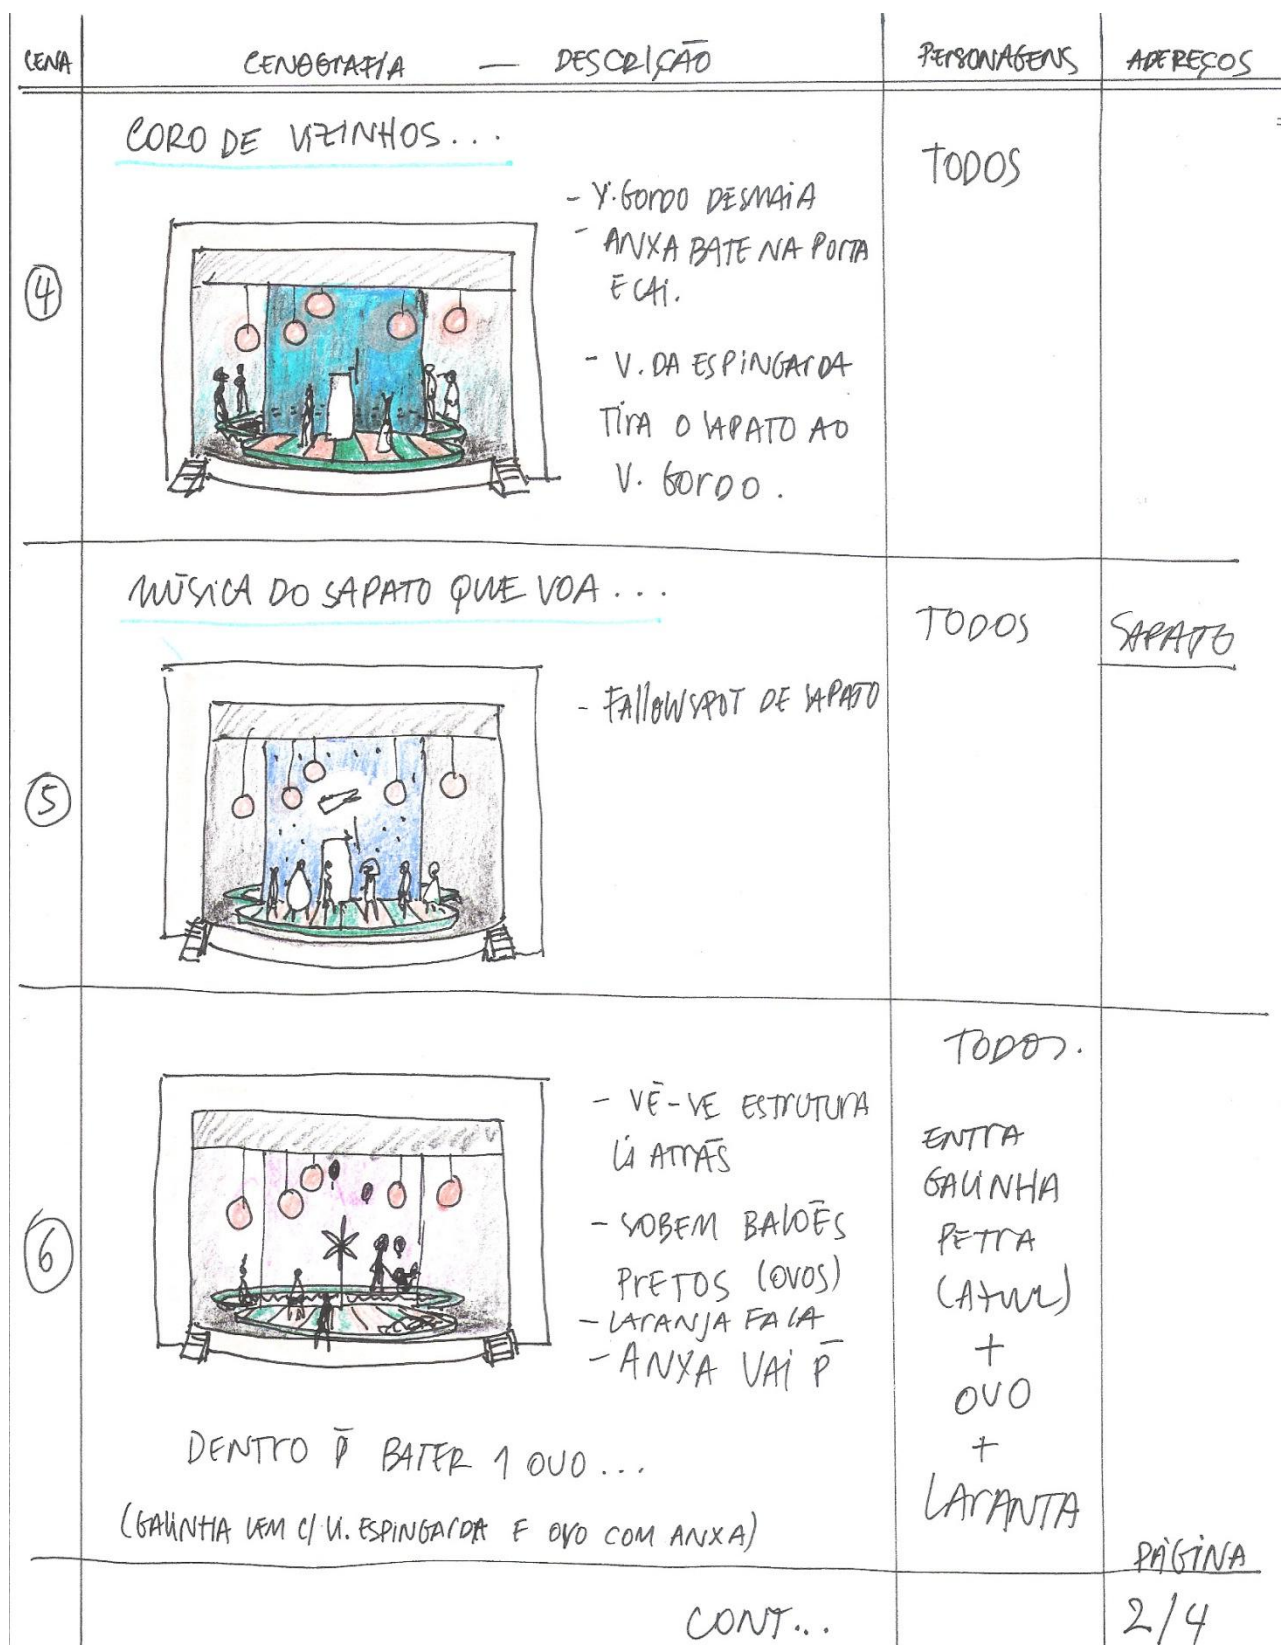 CENA CENOGRAFIA — DESCRIÇÃO PERSONAGENS ADEREÇOS
CORO DE VIZINHOS...
TODOS
④
- V. GORDO DESMAIA
- ANXA BATE NA PORTA
E CAI.
- V. DA ESPINGARDA
TIRA O SAPATO AO
V. GORDO.
MÚSICA DO SAPATO QUE VOA...
TODOS
SAPATO
⑤
- FALLOWSPOT DE SAPATO
⑥
- VÊ-VE ESTRUTURA
LÁ ATRÁS
- SOBEM BALÕES
PRETOS (OVOS)
- LARANJA FALA
- ANXA VAI P̄
DENTRO P̄ BATER 1 OVO...
(GALINHA VEM C/ V. ESPINGARDA E OVO COM ANXA)
TODOS.
ENTRA
GALINHA
PETRA
+
OVO
+
LARANJA
CONT...
PÁGINA
2/4